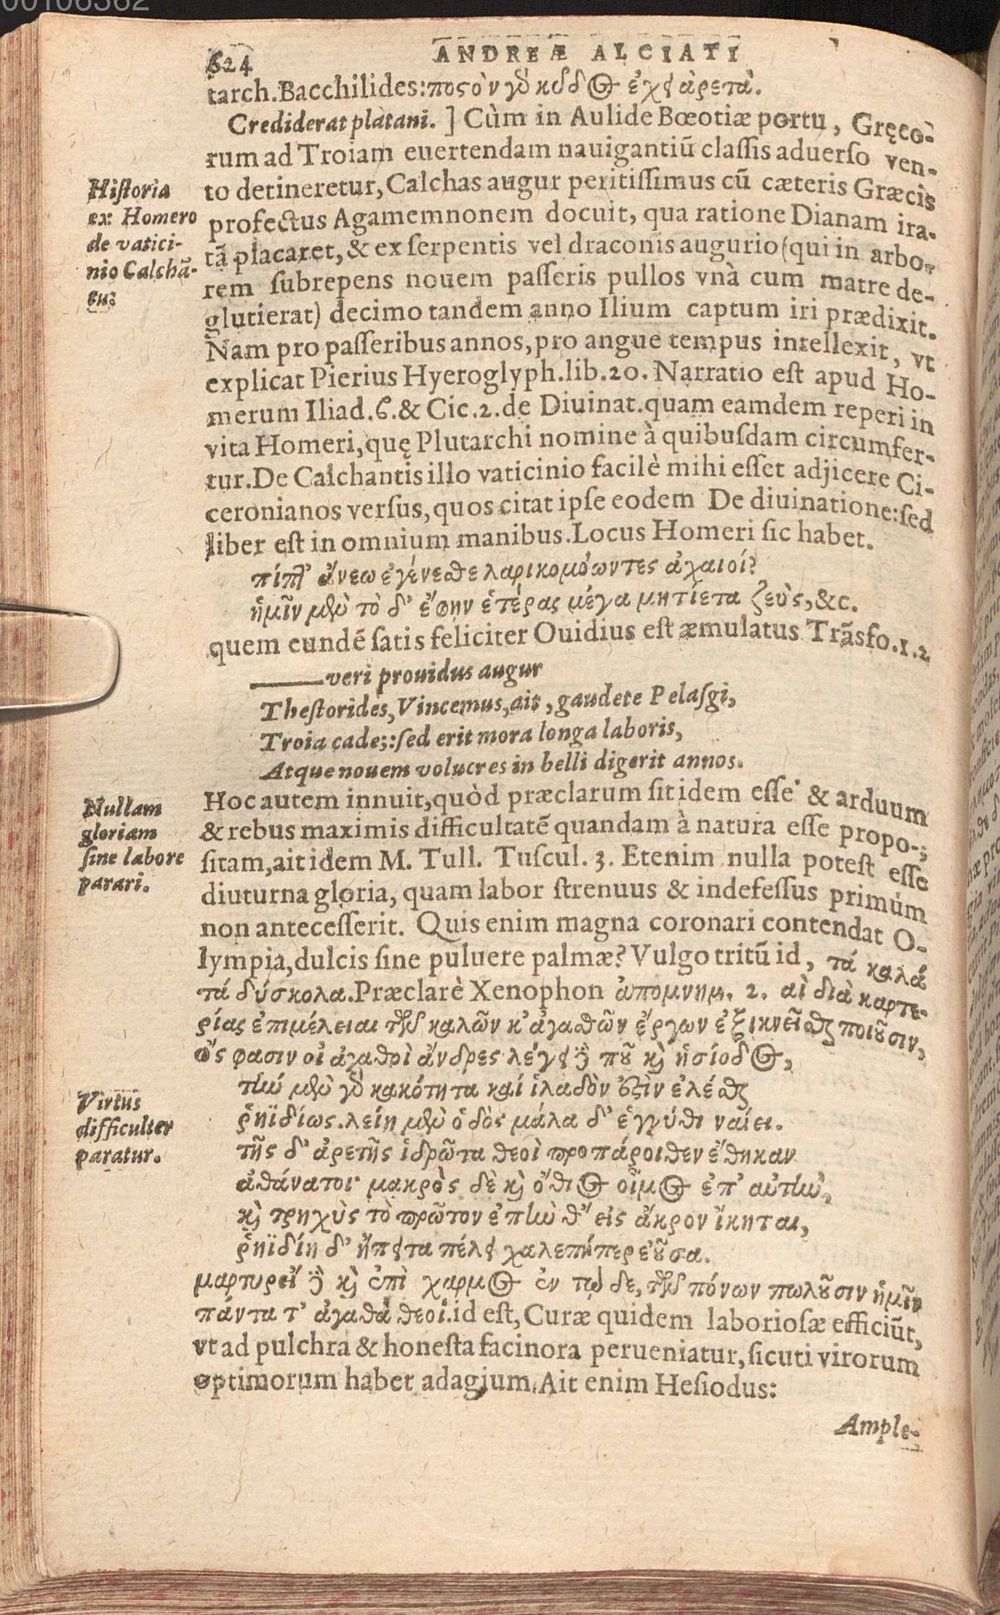 00106362
624
ANDREÆ ALCIATI
tarch.Bacchilides:
Crediderat platani. ] Cùm in Aulide Bœotiæ portu, Gręco-
rum ad Troiam euertendam nauigantiũ classis aduerso ven-
to detineretur, Calchas augur peritissimus cũ cæteris Græcis
profectus Agamemnonem docuit, qua ratione Dianam ira-
tã placaret, & ex serpentis vel draconis augurio (qui in arbo-
rem subrepens nouem passeris pullos vnà cum matre de-
glutierat) decimo tandem anno Ilium captum iri prædixit.
Nam pro passeribus annos, pro angue tempus intellexit, vt
explicat Pierius Hyeroglyph.lib.20. Narratio est apud Ho-
merum Iliad.6.& Cic.2.de Diuinat.quam eamdem reperi in
vita Homeri, quę Plutarchi nomine à quibusdam circumfer-
tur.De Calchantis illo vaticinio facilè mihi esset adjicere Ci-
ceronianos versus, quos citat ipse eodem De diuinatione:sed
liber est in omnium manibus.Locus Homeri sic habet.
ἄνεω ἐγένεσθε καρικομόωντες ἀχαιοί?
ἡμῖν μὲν τὸ δ' ἔφην ἑτέρας μέγα μητίετα ζεὺς, &c.
quem eundẽ satis feliciter Ouidius est æmulatus Trãsfo.1.2
——veri prouidus augur
Thestorides, Vincemus, ait, gaudete Pelasgi,
Troia cadet:sed erit mora longa laboris,
Atque nouem volucres in belli digerit annos.
Hoc autem innuit, quòd præclarum sit idem esse & arduum
& rebus maximis difficultatẽ quandam à natura esse propo-
sitam, ait idem M. Tull. Tuscul. 3. Etenim nulla potest esse
diuturna gloria, quam labor strenuus & indefessus primùm
non antecesserit. Quis enim magna coronari contendat O-
lympia, dulcis sine puluere palmæ? Vulgo tritũ id, τά καλά
τά δύσκολα.Præclarè Xenophon ἀπομνημ. 2. αἱ διὰ καρτε-
ρίας ἐπιμέλειαι τῶν καλῶν κ' ἀγαθῶν ἔργων ἐξικνεῖσθαι ποιοῦσιν,
ὥς φασιν οἱ ἀγαθοὶ ἄνδρες λέγει δὲ που καὶ ἡσίοδος,
τὴν μὲν γὰρ κακότητα καὶ ἱλαδὸν ἔστιν ἑλέσθαι
ῥηϊδίως.λείη μὲν ὁδὸς μάλα δ' ἐγγύθι ναίει.
τῆς δ' ἀρετῆς ἱδρῶτα θεοὶ προπάροιθεν ἔθηκαν
ἀθάνατοι· μακρὸς δὲ καὶ ὄθιος οἶμος ἐπ' αὐτὴν,
καὶ τρηχὺς τὸ πρῶτον ἐπὴν δ' εἰς ἄκρον ἵκηται,
ῥηϊδίη δ' ἤπειτα πέλει χαλεπήπερ ἐοῦσα.
μαρτυρεῖ δὲ καὶ ἐπὶ χαρμος ἐν τῷ δε, τῶν πόνων πωλοῦσιν ἡμῖν
πάντα τ' ἀγαθὰ θεοί.id est, Curæ quidem laboriosæ efficiũt,
vt ad pulchra & honesta facinora perueniatur, sicuti virorum
optimorum habet adagium.Ait enim Hesiodus:
Ample-
Historia
ex Homero
de vatici-
nio Calchã-
Nullam
gloriam
sine labore
parari.
Virtus
difficulter
paratur.